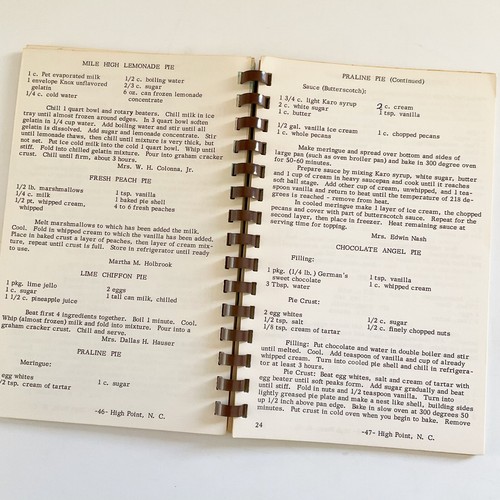 MILE HIGH LEMONADE PIE
1 c. Pet evaporated milk
1 envelope Knox unflavored
gelatin
1/4 c. cold water
1/2 c. boiling water
2/3 c. sugar
6 oz. can frozen lemonade
concentrate
Chill 1 quart bowl and rotary beaters. Chill milk in ice
tray until almost frozen around edges. In 3 quart bowl soften
gelatin in 1/4 cup water. Add boiling water and stir until all
gelatin is dissolved. Add sugar and lemonade concentrate. Stir
until lemonade thaws, then chill until mixture is very thick, but
not set. Put ice cold milk into the cold 1 quart bowl. Whip until
stiff. Fold into chilled gelatin mixture. Pour into graham cracker
crust. Chill until firm, about 3 hours.
Mrs. W. H. Colonna, Jr.
FRESH PEACH PIE
1/2 lb. marshmallows
1/4 c. milk
1/2 pt. whipped cream,
whipped
1 tsp. vanilla
1 baked pie shell
4 to 6 fresh peaches
Melt marshmallows to which has been added the milk.
Cool. Fold in whipped cream to which the vanilla has been added.
Place in baked crust a layer of peaches, then layer of cream mix-
ture, repeat until crust is full. Store in refrigerator until ready
to use.
Martha M. Holbrook
LIME CHIFFON PIE
1 pkg. lime jello
1 c. sugar
1 1/2 c. pineapple juice
2 eggs
1 tall can milk, chilled
Beat first 4 ingredients together. Boil 1 minute. Cool.
Whip (almost frozen) milk and fold into mixture. Pour into a
graham cracker crust. Chill and serve.
Mrs. Dallas H. Hauser
PRALINE PIE
Meringue:
egg whites
1/2 tsp. cream of tartar
1 c. sugar
-46- High Point, N. C.
PRALINE PIE (Continued)
Sauce (Butterscotch):
1 3/4 c. light Karo syrup
2 c. white sugar
1 c. butter
2 c. cream
1 tsp. vanilla
1/2 gal. vanilla ice cream
1 c. whole pecans
1 c. chopped pecans
Make meringue and spread over bottom and sides of
large pan (such as oven broiler pan) and bake in 300 degree oven
for 50-60 minutes.
Prepare sauce by mixing Karo syrup, white sugar, butter
and 1 cup of cream in heavy saucepan and cook until it reaches
soft ball stage. Add other cup of cream, unwhipped, and 1 tea-
spoon vanilla and return to heat until the temperature of 218 de-
grees is reached - remove from heat.
In cooled meringue make 1 layer of ice cream, the chopped
pecans and cover with part of butterscotch sauce. Repeat for the
second layer, then place in freezer. Heat remaining sauce at
serving time for topping.
Mrs. Edwin Nash
CHOCOLATE ANGEL PIE
Filling:
1 pkg. (1/4 lb.) German's
sweet chocolate
3 Tbsp. water
1 tsp. vanilla
1 c. whipped cream
Pie Crust:
2 egg whites
1/2 tsp. salt
1/8 tsp. cream of tartar
1/2 c. sugar
1/2 c. finely chopped nuts
Filling: Put chocolate and water in double boiler and stir
until melted. Cool. Add teaspoon of vanilla and cup of already
whipped cream. Turn into cooled pie shell and chill in refrigera-
tor at least 3 hours.
Pie Crust: Beat egg whites, salt and cream of tartar with
egg beater until soft peaks form. Add sugar gradually and beat
until stiff. Fold in nuts and 1/2 teaspoon vanilla. Turn into
lightly greased pie plate and make a nest like shell, building sides
up 1/2 inch above pan edge. Bake in slow oven at 300 degrees 50
minutes. Put crust in cold oven when you begin to bake. Remove
24
-47- High Point, N. C.